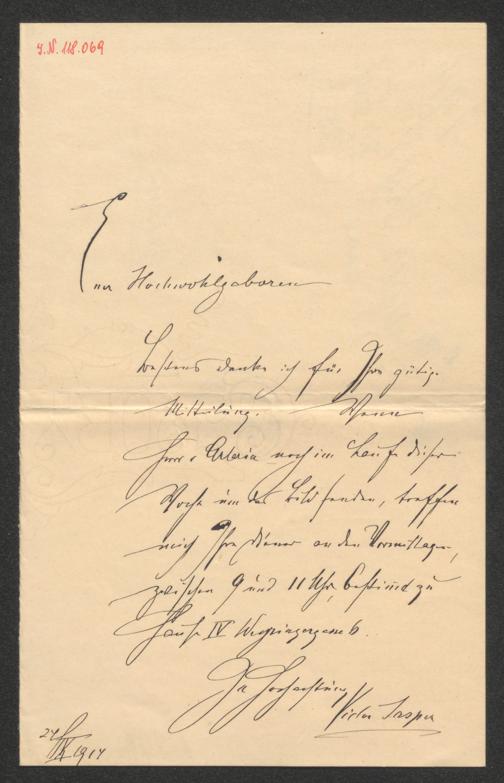 J.N. 118.069
Euer Hochwohlgeboren
Bestens danke ich für Ihre gütige
Mitteilung. Wenn
Herr v Artaria noch im Laufe dieser
Woche um das Bild senden, treffen
mich Ihre Diener an den Vormittagen,
zwischen 9 und 11 Uhr, bestimmt zu
Hause IV Weyringergasse 6.
In Hochachtung
Victor Jasper
1914